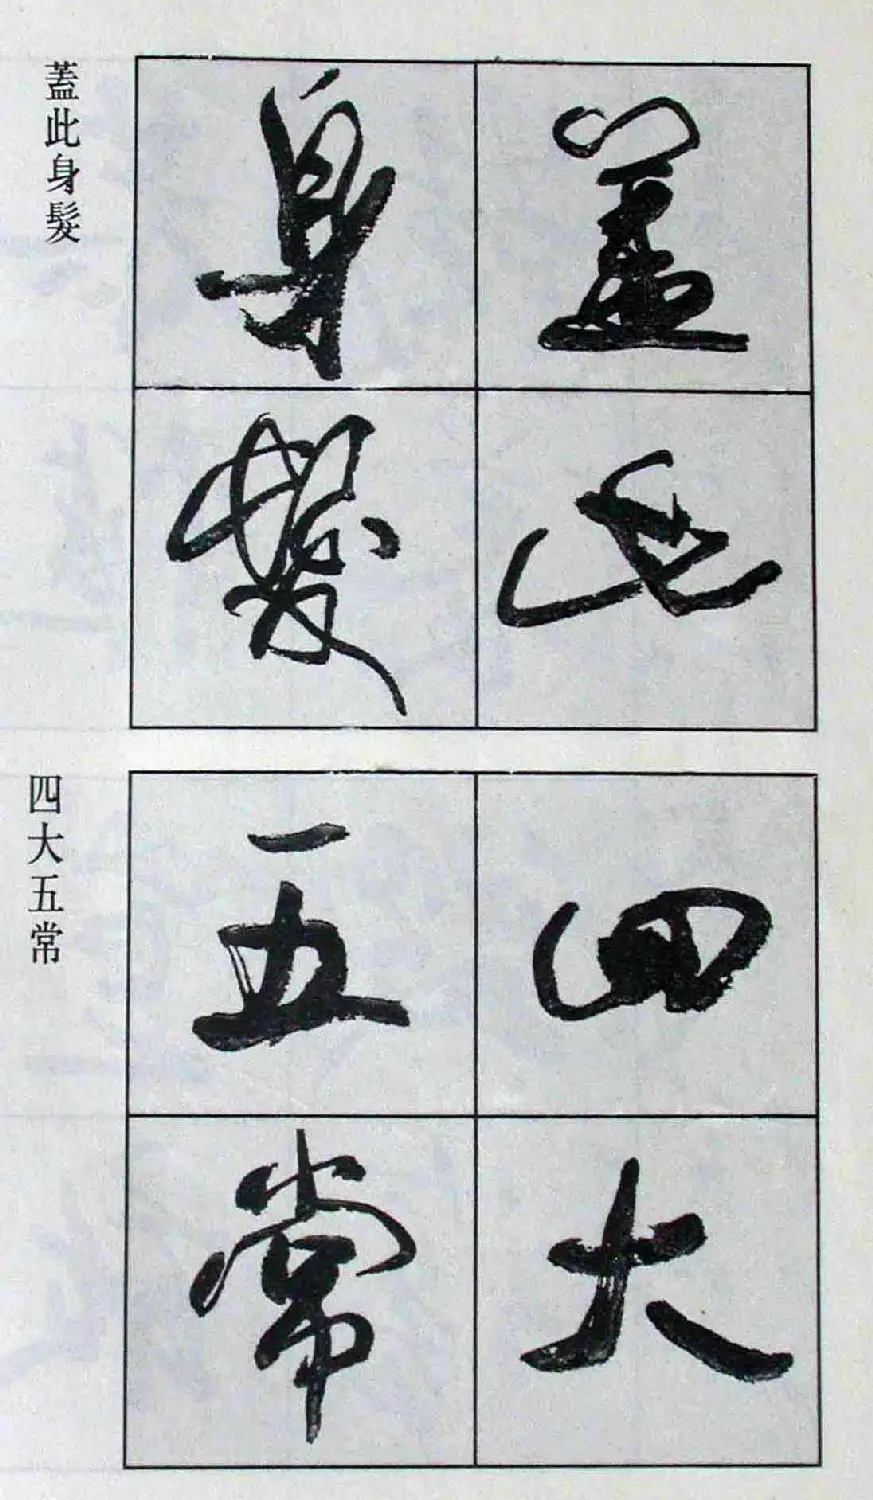 蓋此身髮
蓋此
身髮
四大五常
四大
五常